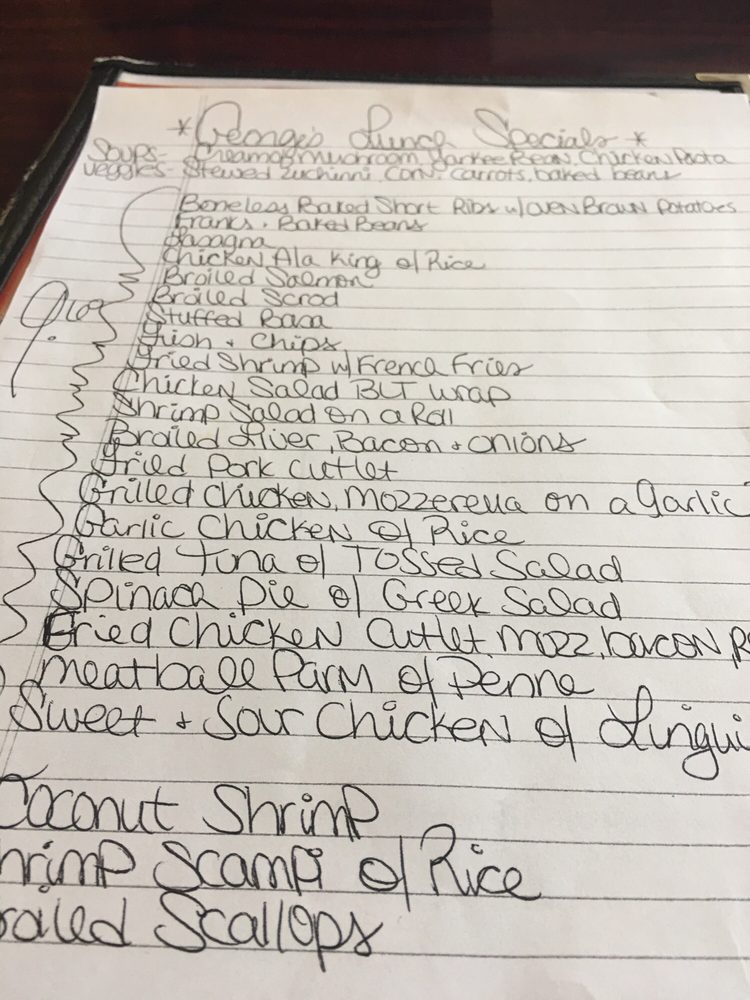 *George's Lunch Specials*
Soups- Cream of mushroom, Yankee Bean, Chicken Pasta
Veggies- Stewed Zuchinni, Corn, Carrots, baked beans
Boneless Baked Short Ribs w/ OVEN Brown Potatoes
Franks + Baked Beans
Lasagna
Chicken Ala King w/ Rice
Broiled Salmon
Broiled Scrod
Stuffed Basa
Fish + Chips
Fried Shrimp w/ French Fries
Chicken Salad BLT wrap
Shrimp Salad on a Roll
Broiled Liver, Bacon + onions
Fried Pork Cutlet
Grilled Chicken, mozzerella on a garlic
Garlic Chicken w/ Rice
Grilled Tuna w/ Tossed Salad
Spinach Pie w/ Greek Salad
Fried Chicken Cutlet, mozz, bacon, R
Meatball Parm w/ Penne
Sweet + Sour Chicken w/ Lingui
Coconut Shrimp
hrimp Scampi w/ Rice
oiled Scallops